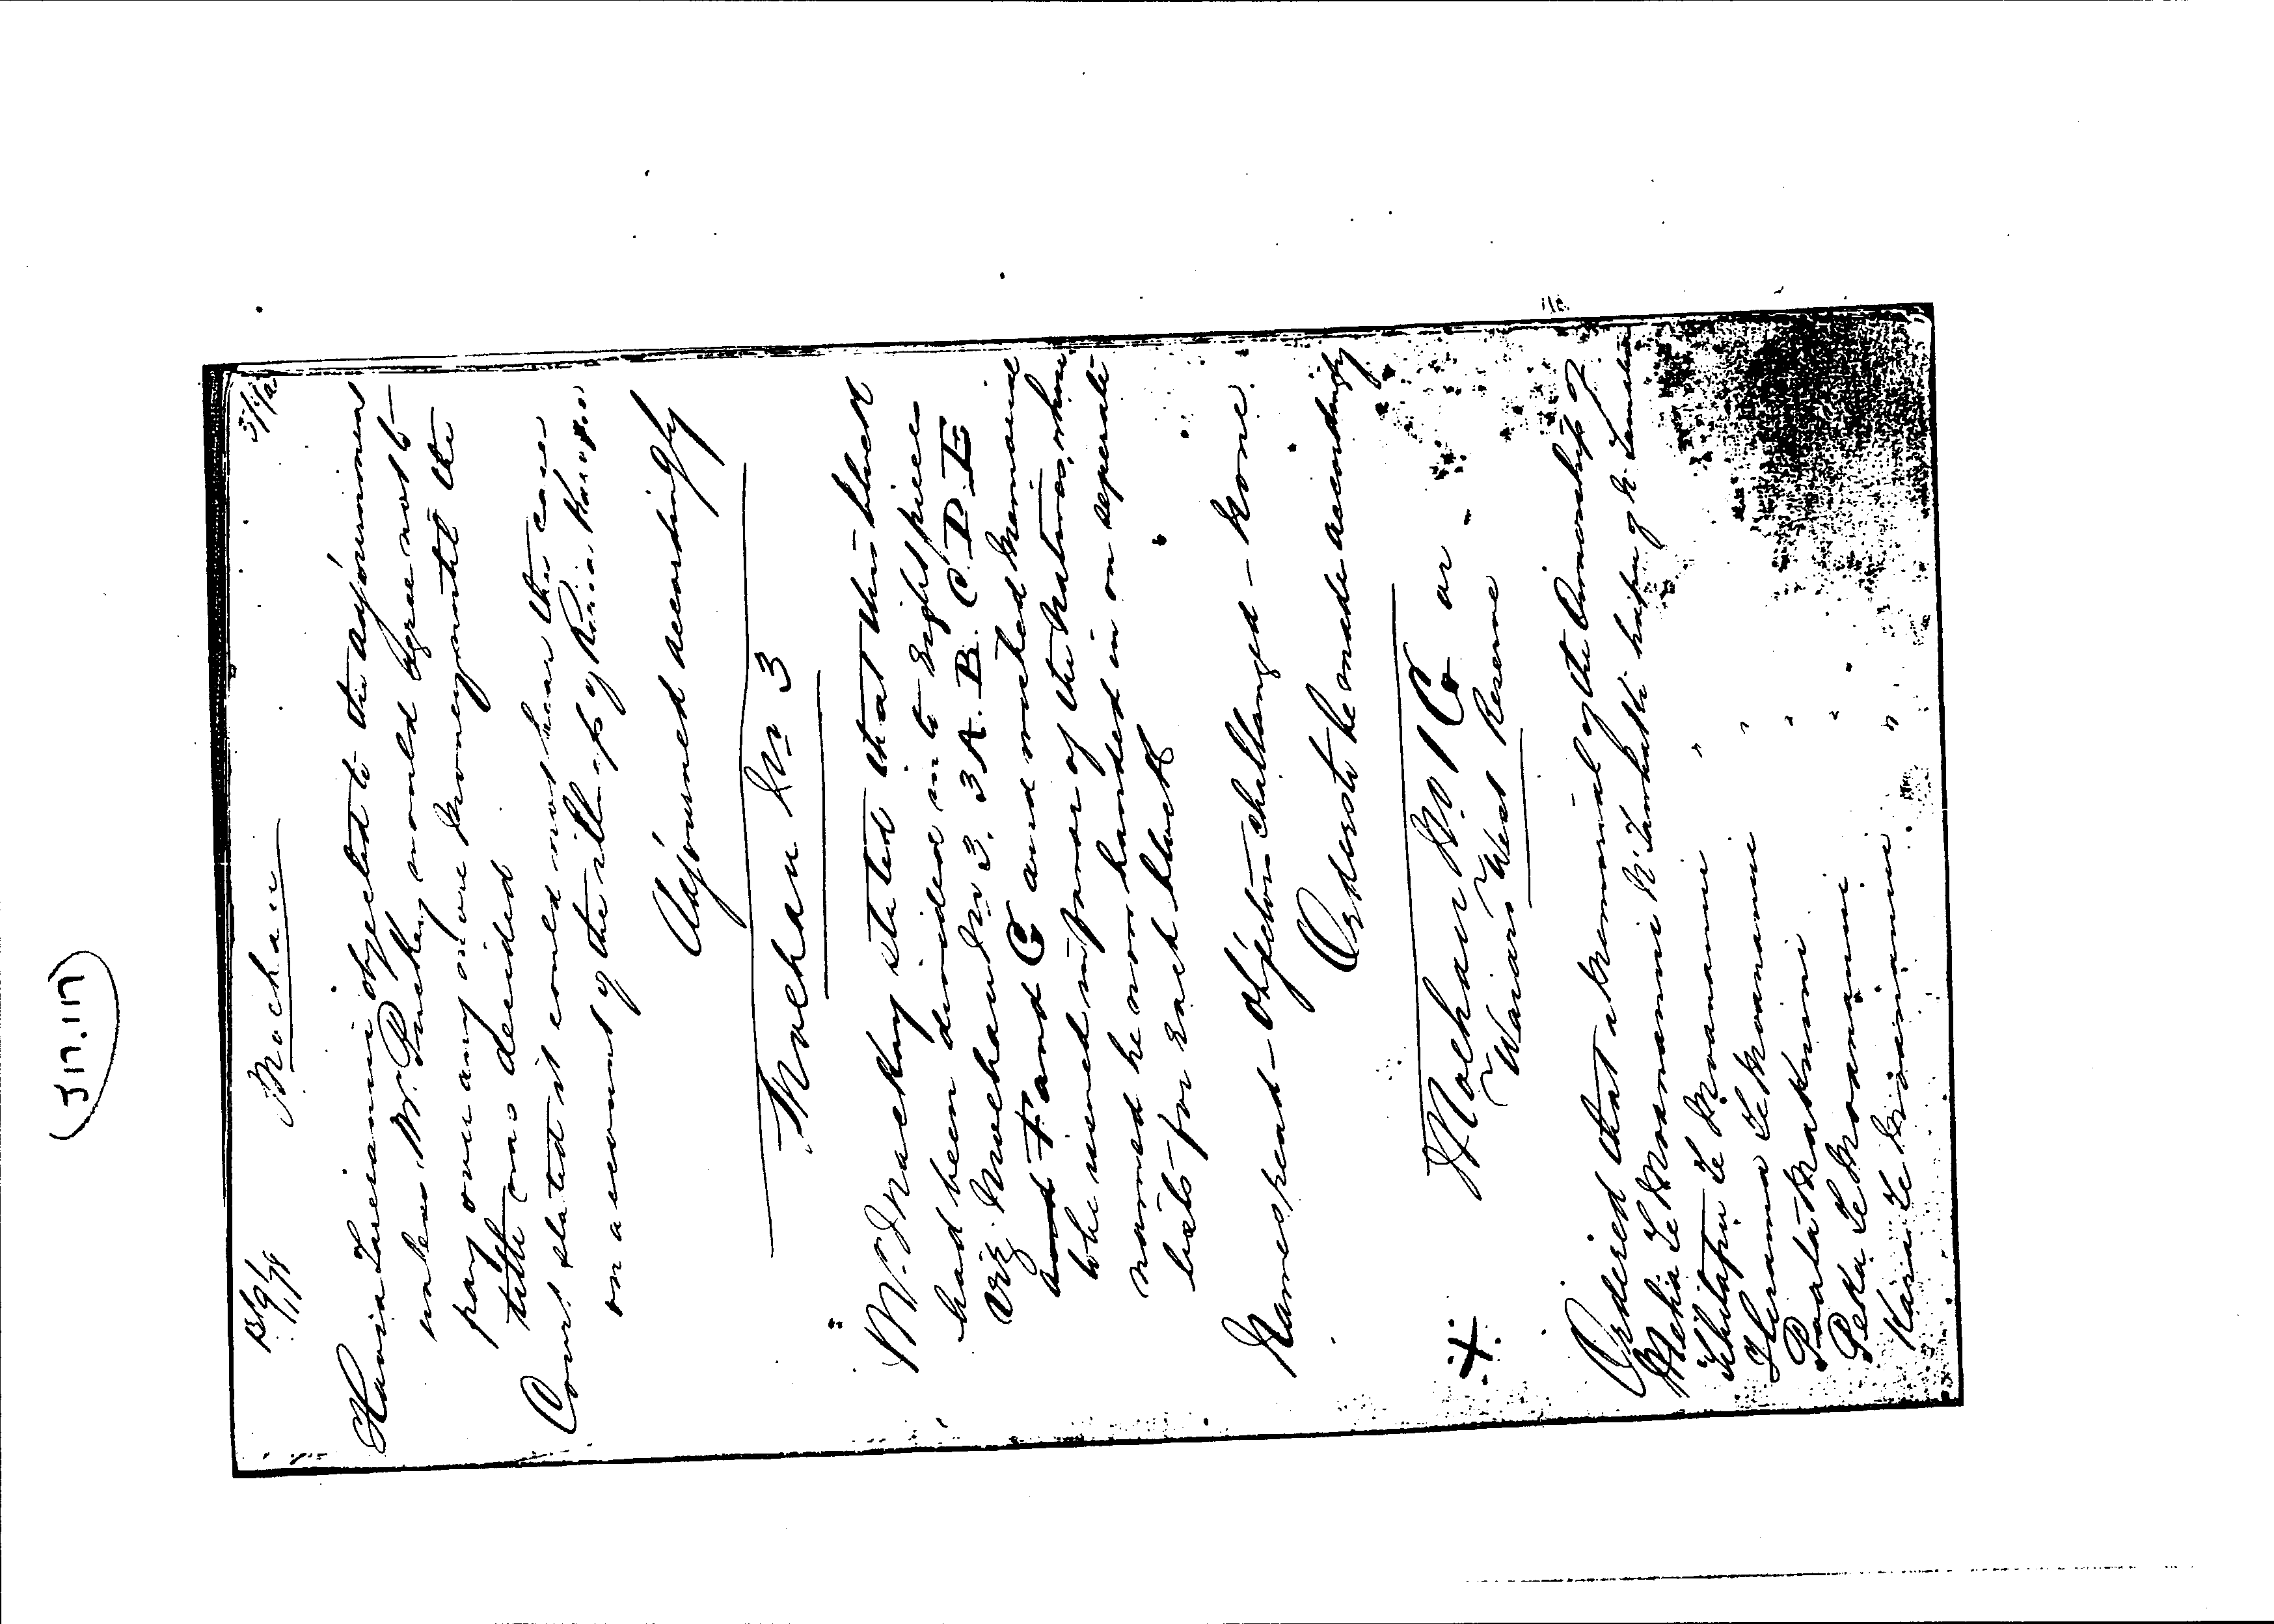 (317.117)
Moehau
Haora Tareranui objected to the adjournment
unless Mr. Puckey would agree not to
pay over any more money until the
title was decided
Court stated it could not hear the case
on account of the illness of
Adjourned accordingly
Moehau No 3
Mr. Mackay stated that this block
had been divided into Eight pieces
viz. Moehau No 3. 3A. B. C. D. E
and F and G and wished Memorial
to be issued in favor of the Natives, whose
names he now handed in on seperate
lists for each block
Names read - Objectors challenged - None.
Orders to be made accordingly
Moehau No. 1 G or
Waiaro West Reserve
+
Ordered that a Memorial of the Ownership of
Te Moananui
Te Moananui
Te Moananui
Pata
Peka Te Moananui
Te Moananui